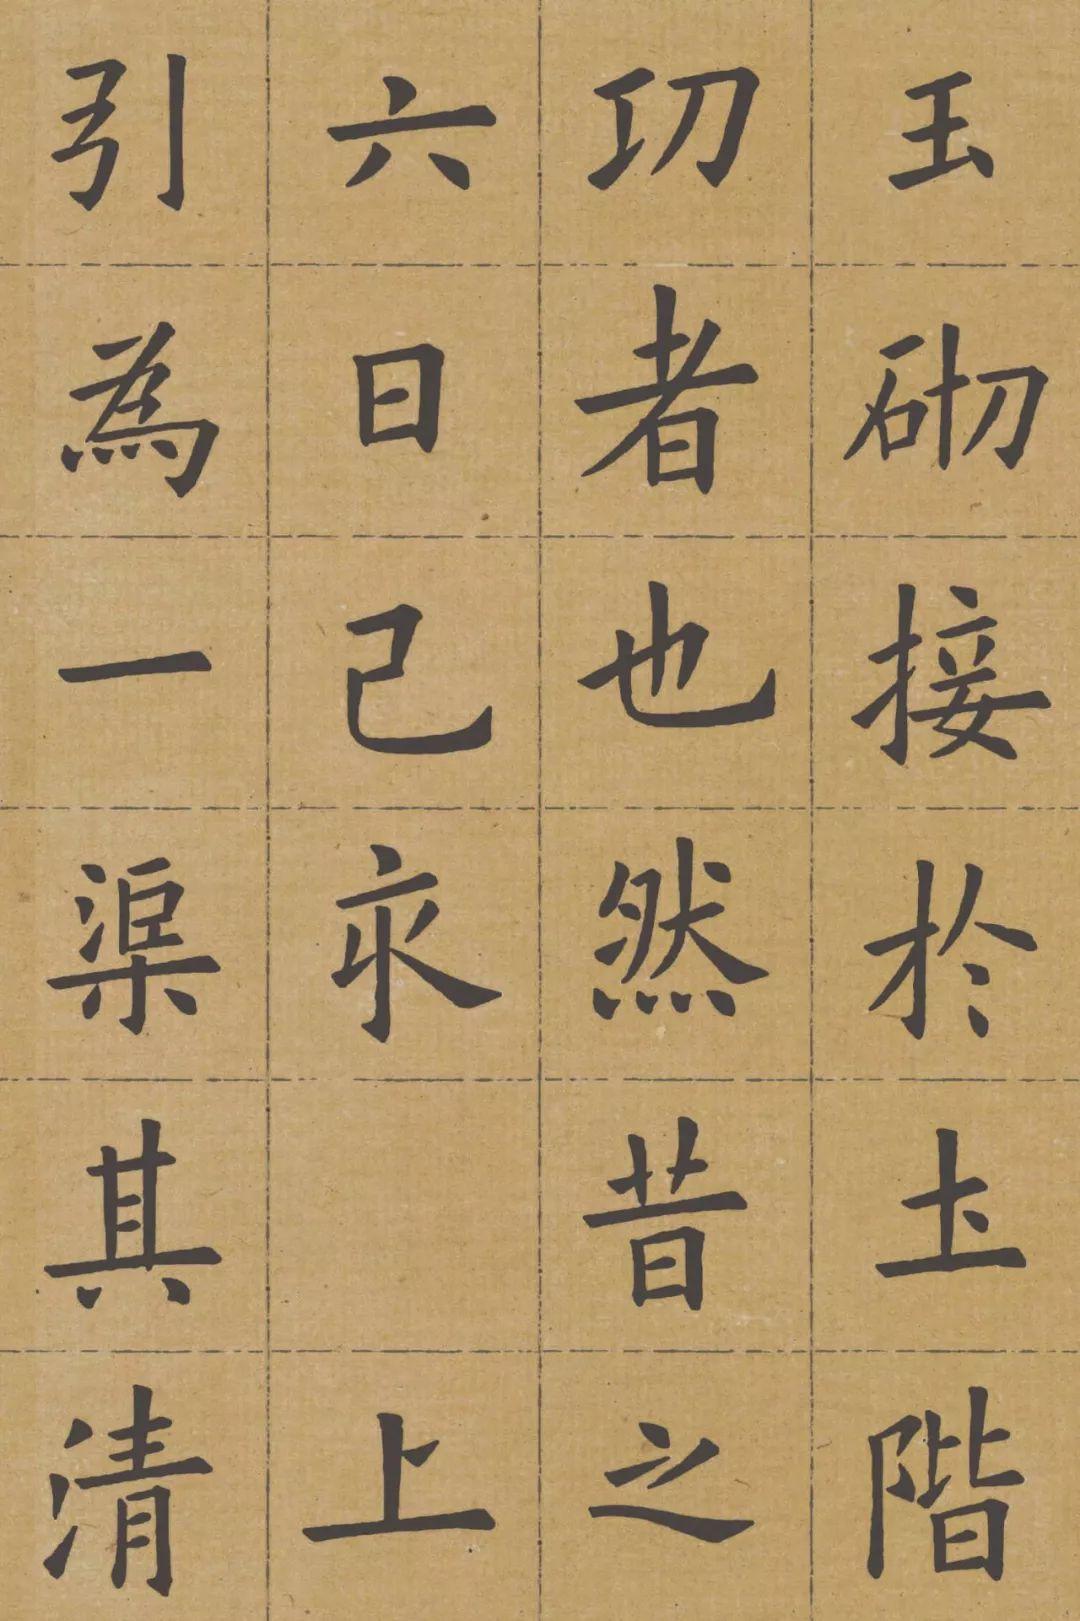 玉砌接於土階
功者也然昔之
六日己亥 上
引為一渠其清